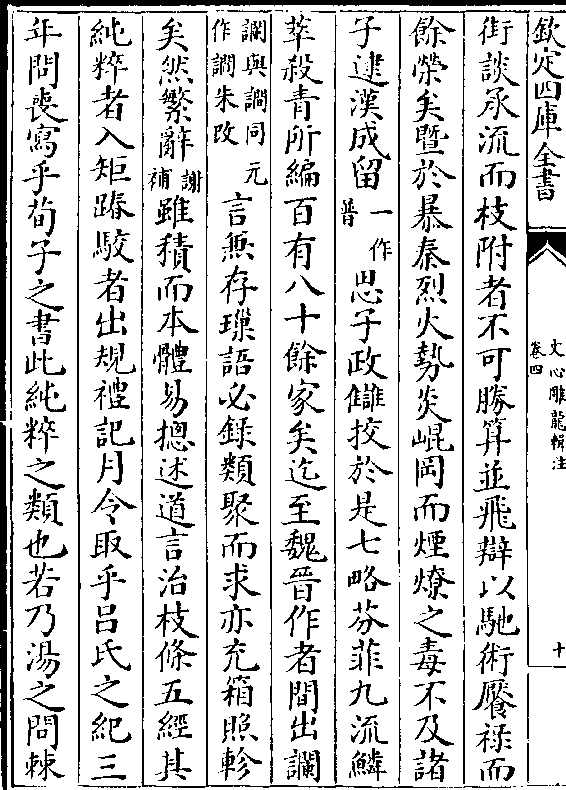 欽定四庫全書
文心雕龍輯注
卷四
十
街談承流而枝附者不可勝算並飛辯以馳術饜禄而
餘榮矣暨於暴秦烈火勢炎崐岡而煙燎之毒不及諸
子逮漢成留一作普思子政讎挍於是七略芬菲九流鱗
萃殺青所編百有八十餘家矣迄至魏晉作者間出讕
讕與讇同元作讇朱改言兼存璅語必録類聚而求亦充箱照軫
矣然繁辭謝補雖積而本體易摠述道言治枝條五經其
純粹者入矩踳駮者出規禮記月令取乎吕氏之紀三
年問喪寫乎荀子之書此純粹之類也若乃湯之問棘